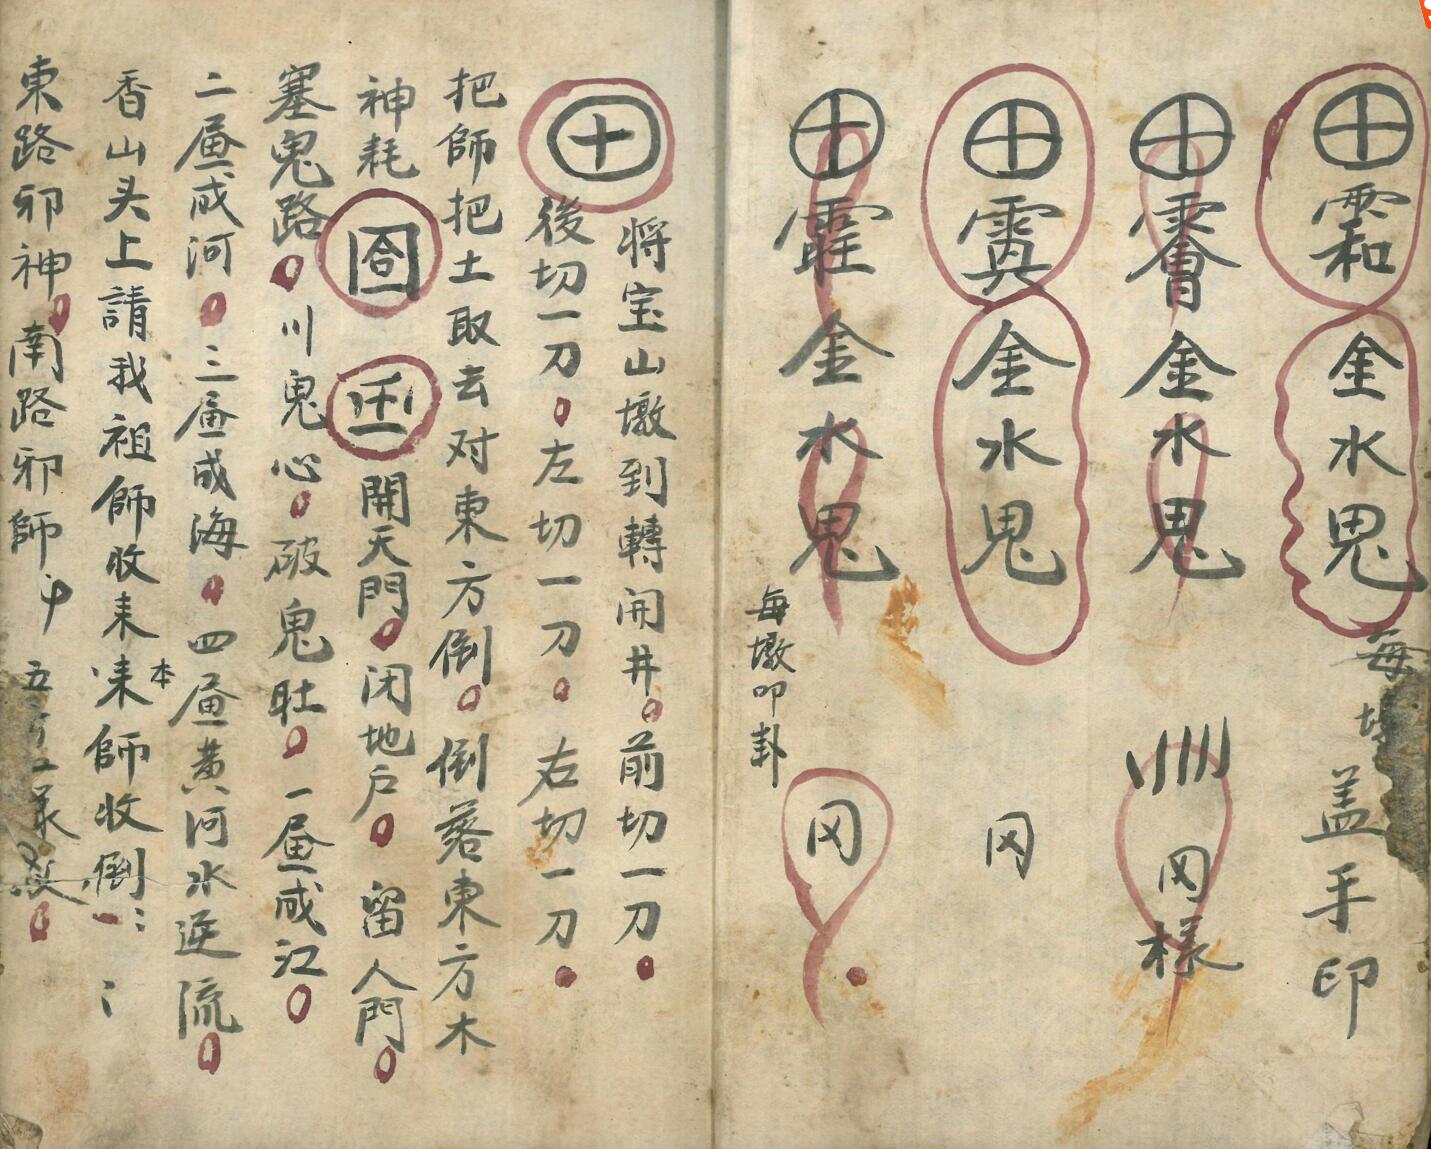 ⊕ 霛 金水鬼 每墩盖手印
⊕ 金水鬼 冈様
⊕ 金水鬼 冈
⊕ 金水鬼 每墩叩卦 冈
将宝山墩到轉開井。前切一刀。
後切一刀。左切一刀。右切一刀。
把師把土取去对東方倒。倒落東方木
神耗 開天門。闭地户。留人門。
塞鬼路。川鬼心。破鬼肚。一畐成江。
二畐成河。三畐成海。四畐黄河水逆流。
香山头上請我祖師收来本師收倒
東路邪神。南路邪師 五